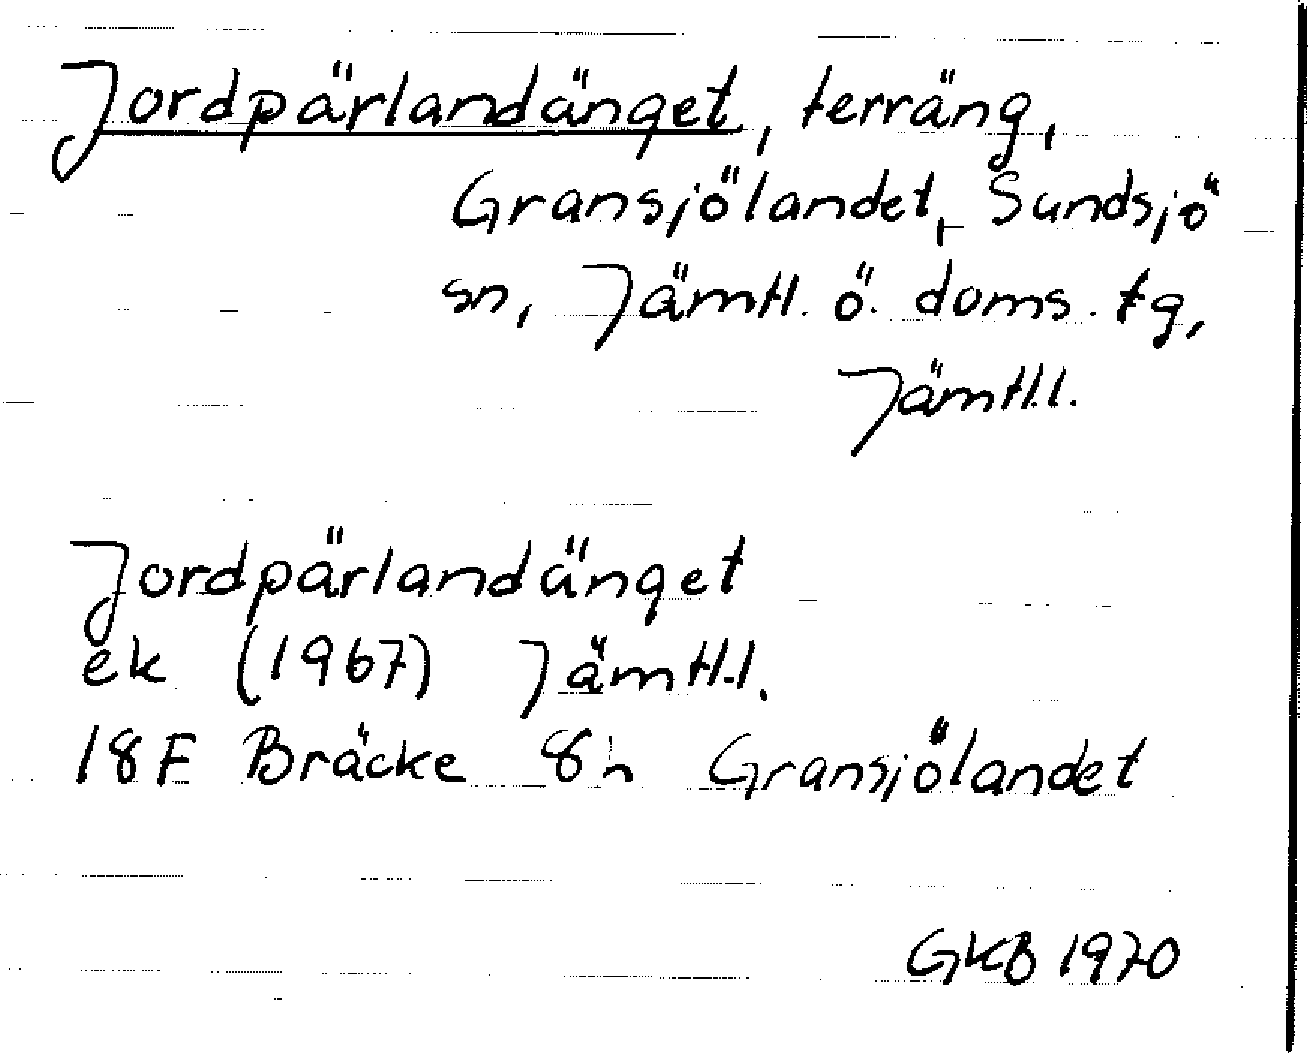 Jordpärlandänget, terräng,
Gransjölandet, Sundsjö
sn, Jämtl. ö. doms. tg,
Jämtl.l.
Jordpärlandänget
ek (1967) Jämtl.l.
18F Bräcke 8h Gransjölandet
GKB 1970